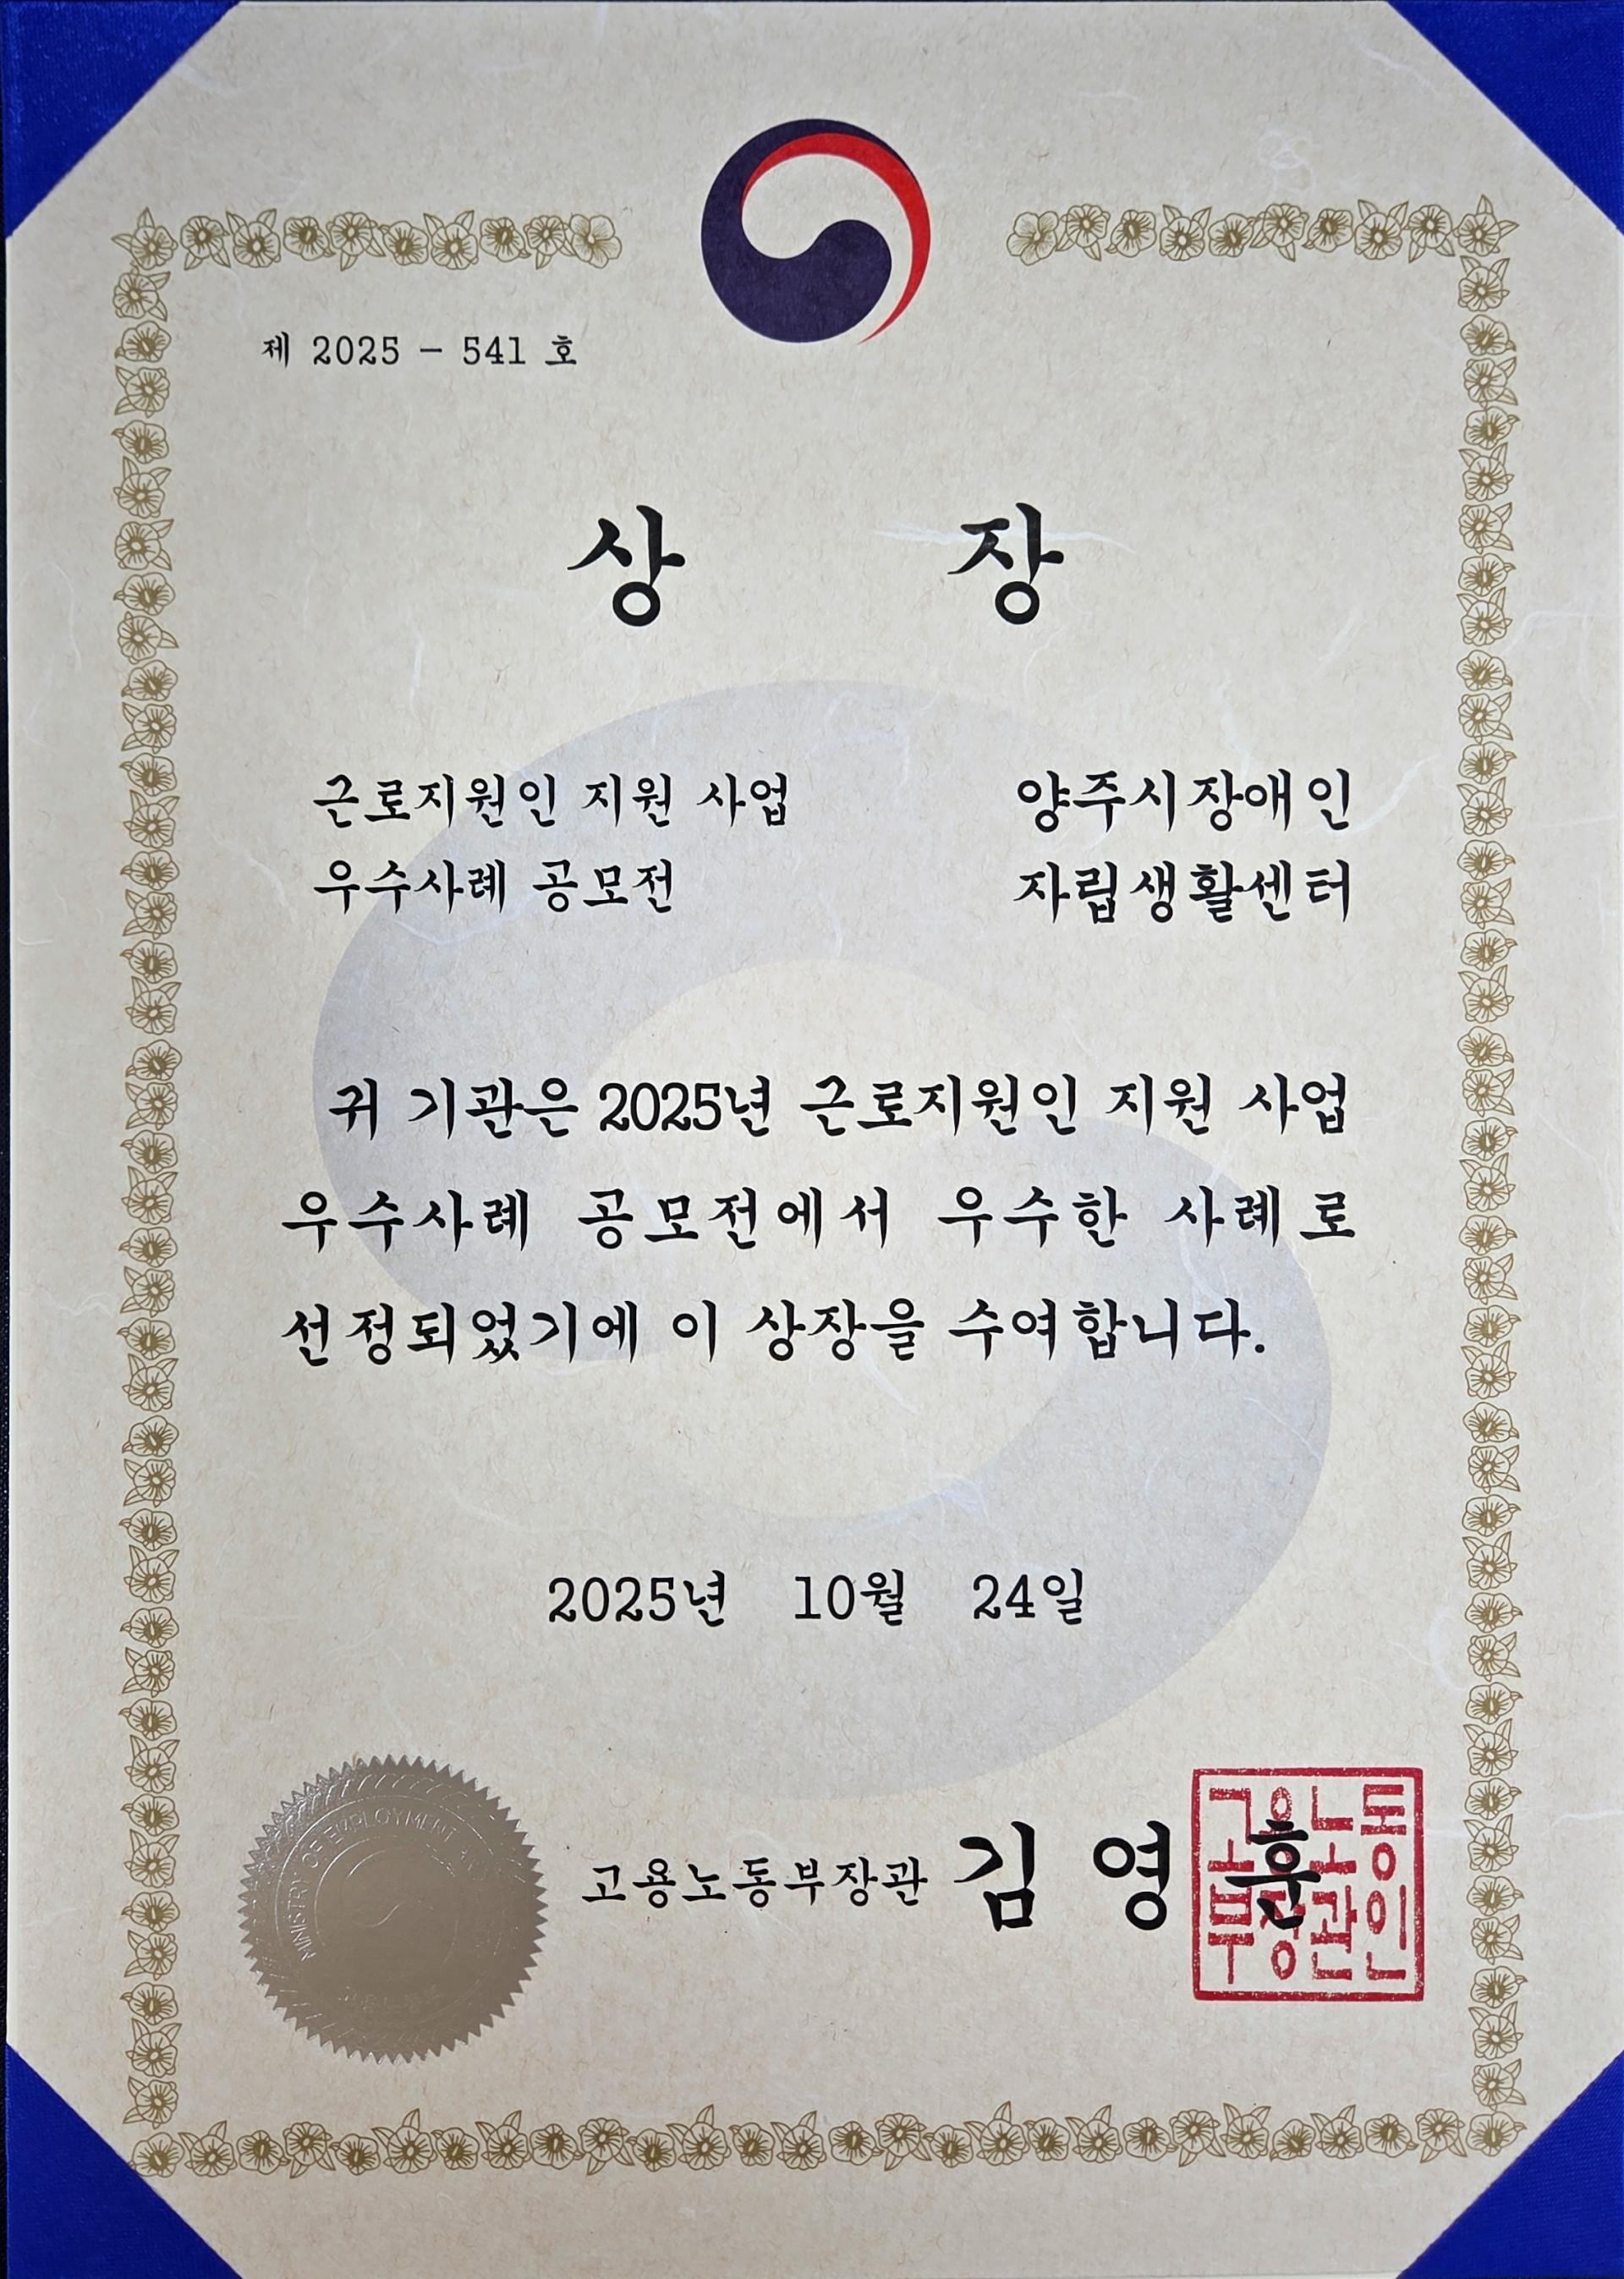 제 2025 - 541 호
상 장
근로지원인 지원 사업
우수사례 공모전
양주시장애인
자립생활센터
귀 기관은 2025년 근로지원인 지원 사업
우수사례 공모전에서 우수한 사례로
선정되었기에 이 상장을 수여합니다.
2025년 10월 24일
MINISTRY OF EMPLOYMENT
고용노동부장관 김 영 훈
고용노동
부장관인